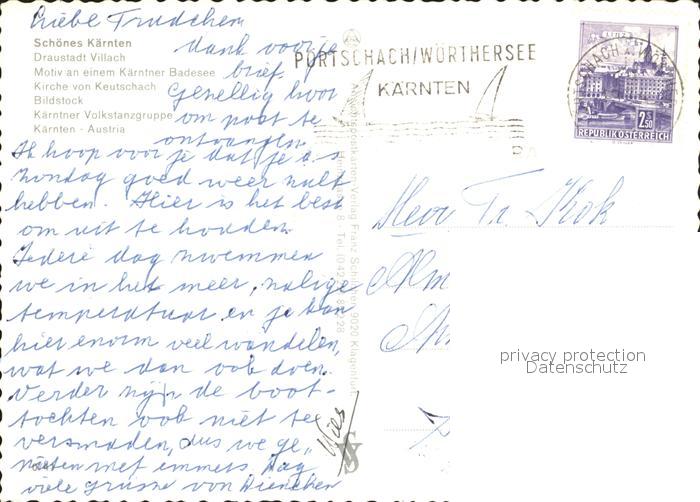 Liebe Trudchen
Schönes Kärnten
Draustadt Villach
Motiv an einem Kärntner Badesee
Kirche von Keutschach
Bildstock
Kärntner Volkstanzgruppe
Kärnten - Austria
dank voor je
brief.
Gezellig hoor
om post te
ontvangen.
Ik hoop voor je dat je a.s.
zondag goed weer zult
hebben. Hier is het best
om uit te houden.
Iedere dag zwemmen
we in het meer, zalige
temperatuur en je kan
hier enorm veel wandelen,
wat we dan ook doen.
Verder zijn de boot-
tochten ook niet te
versmaden, dus we ge-
nieten met emmers. Dag
viele grüsse von Diencken
Wies
PÖRTSCHACH/WÖRTHERSEE
KÄRNTEN
LINZ
2.50
REPUBLIK ÖSTERREICH
Ansichtspostkarten-Verlag Franz Schilcher, 9020 Klagenfurt
Herr Fr. Kok
privacy protection
Datenschutz